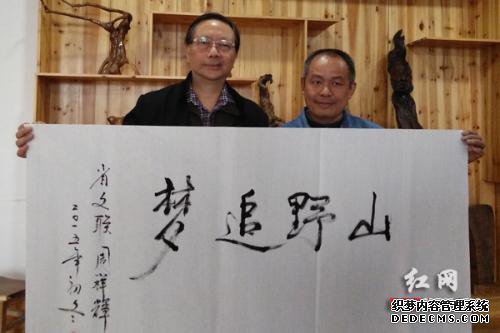 山野追梦
省文联 周祥輝
二〇一五年初冬
红网
织梦内容管理系统
DEDECMS.COM